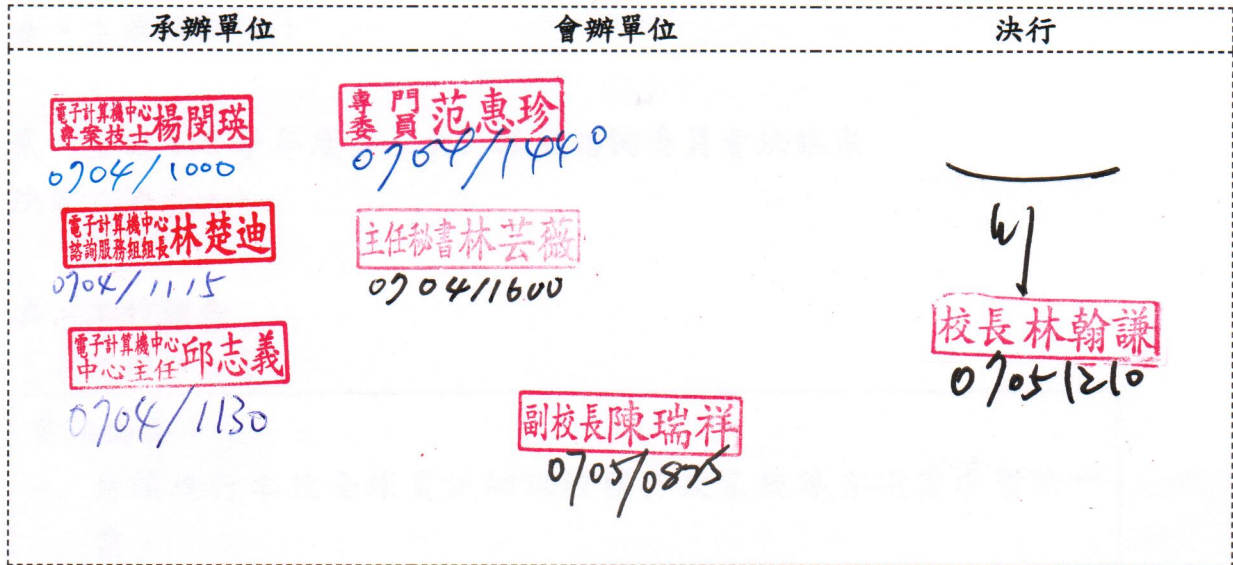 承辦單位 會辦單位 決行
電子計算機中心
專案技士 楊閔瑛
0704/1000
電子計算機中心
諮詢服務組組長 林楚迪
0704/1115
電子計算機中心
中心主任 邱志義
0704/1130
專門
委員 范惠珍
0704/1440
主任秘書 林芸薇
0704/1600
副校長 陳瑞祥
校長 林翰謙
0705 1210